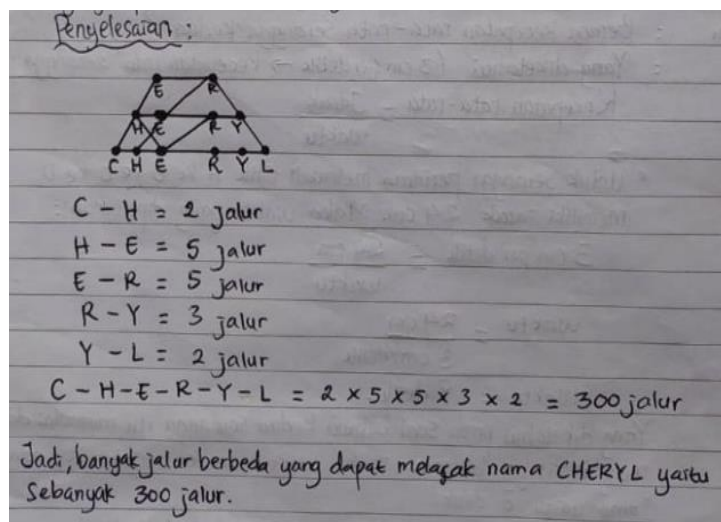 Penyelesaian :
E R
H E R Y
C H E R Y L
C - H = 2 jalur
H - E = 5 jalur
E - R = 5 jalur
R - Y = 3 jalur
Y - L = 2 jalur
C - H - E - R - Y - L = 2 x 5 x 5 x 3 x 2 = 300 jalur
Jadi, banyak jalur berbeda yang dapat melacak nama CHERYL yaitu
Sebanyak 300 jalur.